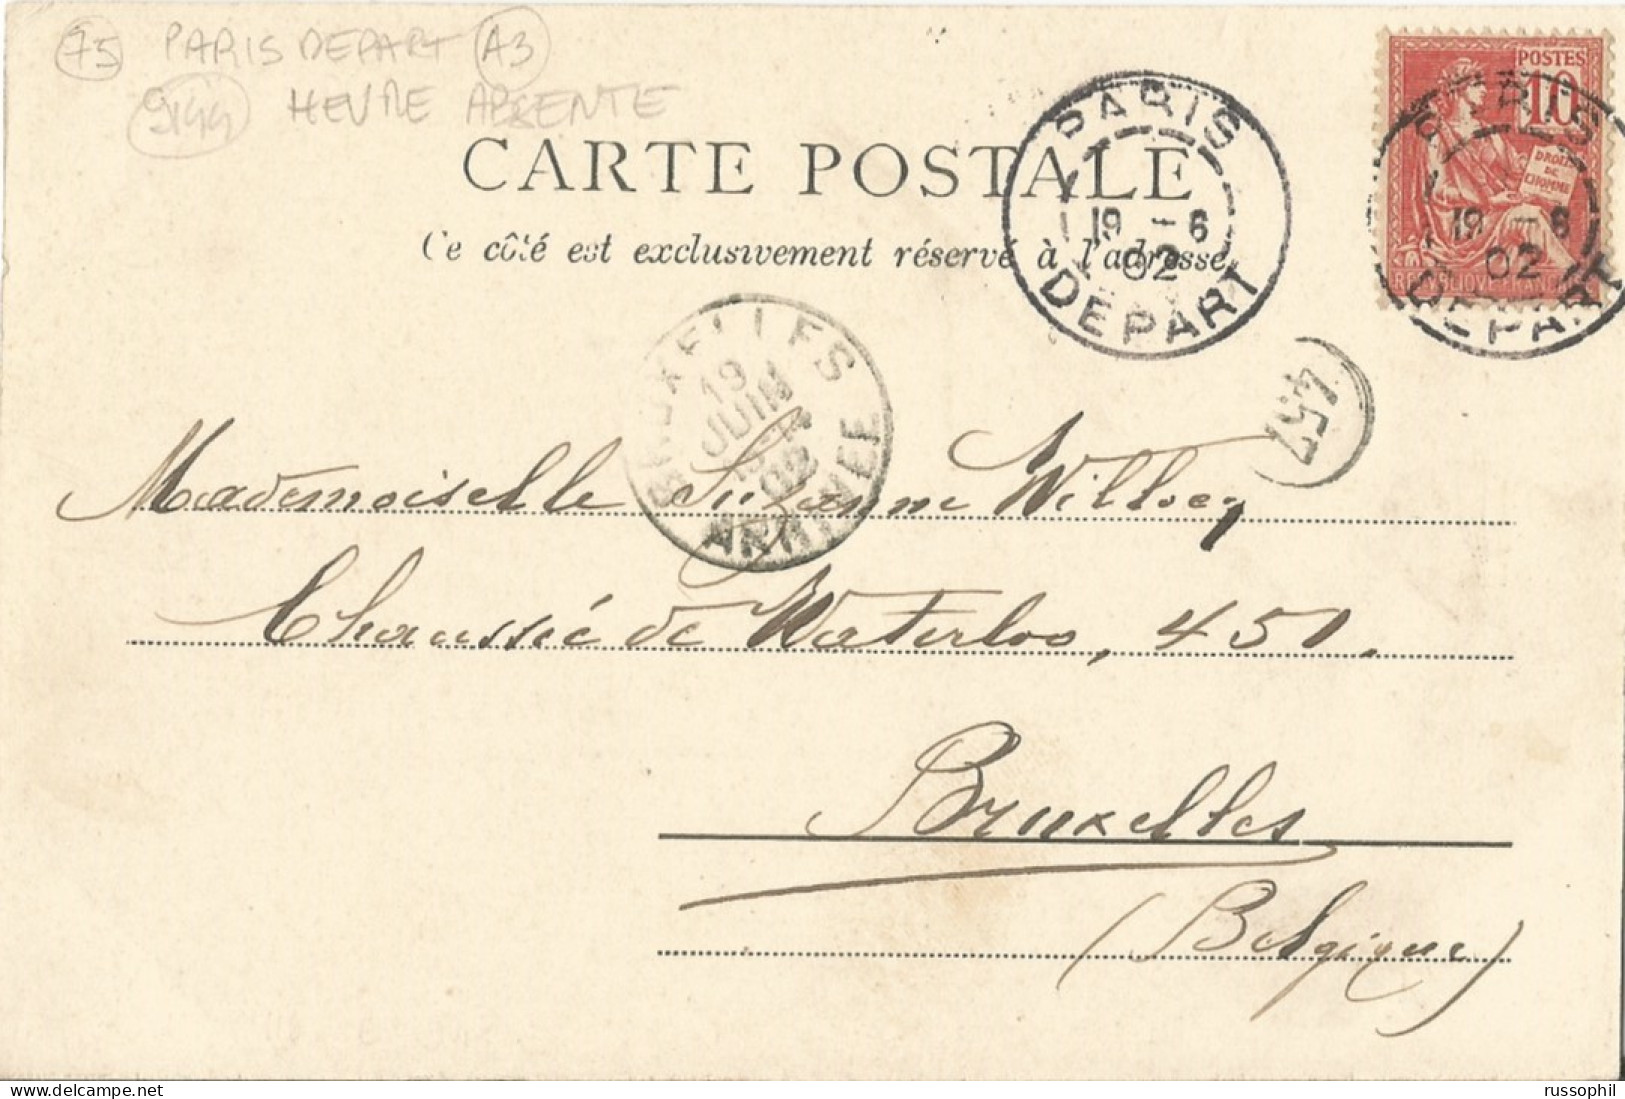 75 PARIS DEPART A3
9144 HEURE ABSENTE
CARTE POSTALE
Ce côté est exclusivement réservé à l'adresse
PARIS
19 - 6
02
DEPART
POSTES
10
DROITS
DE
L'HOMME
REPUBLIQUE FRANCAISE
PARIS
19 - 6
02
DEPART
BRUXELLES
19
JUIN
02
ARRIVEE
457
Mademoiselle Suzanne Willocq
Chaussée de Waterloo, 451.
Bruxelles
(Belgique)
russophil